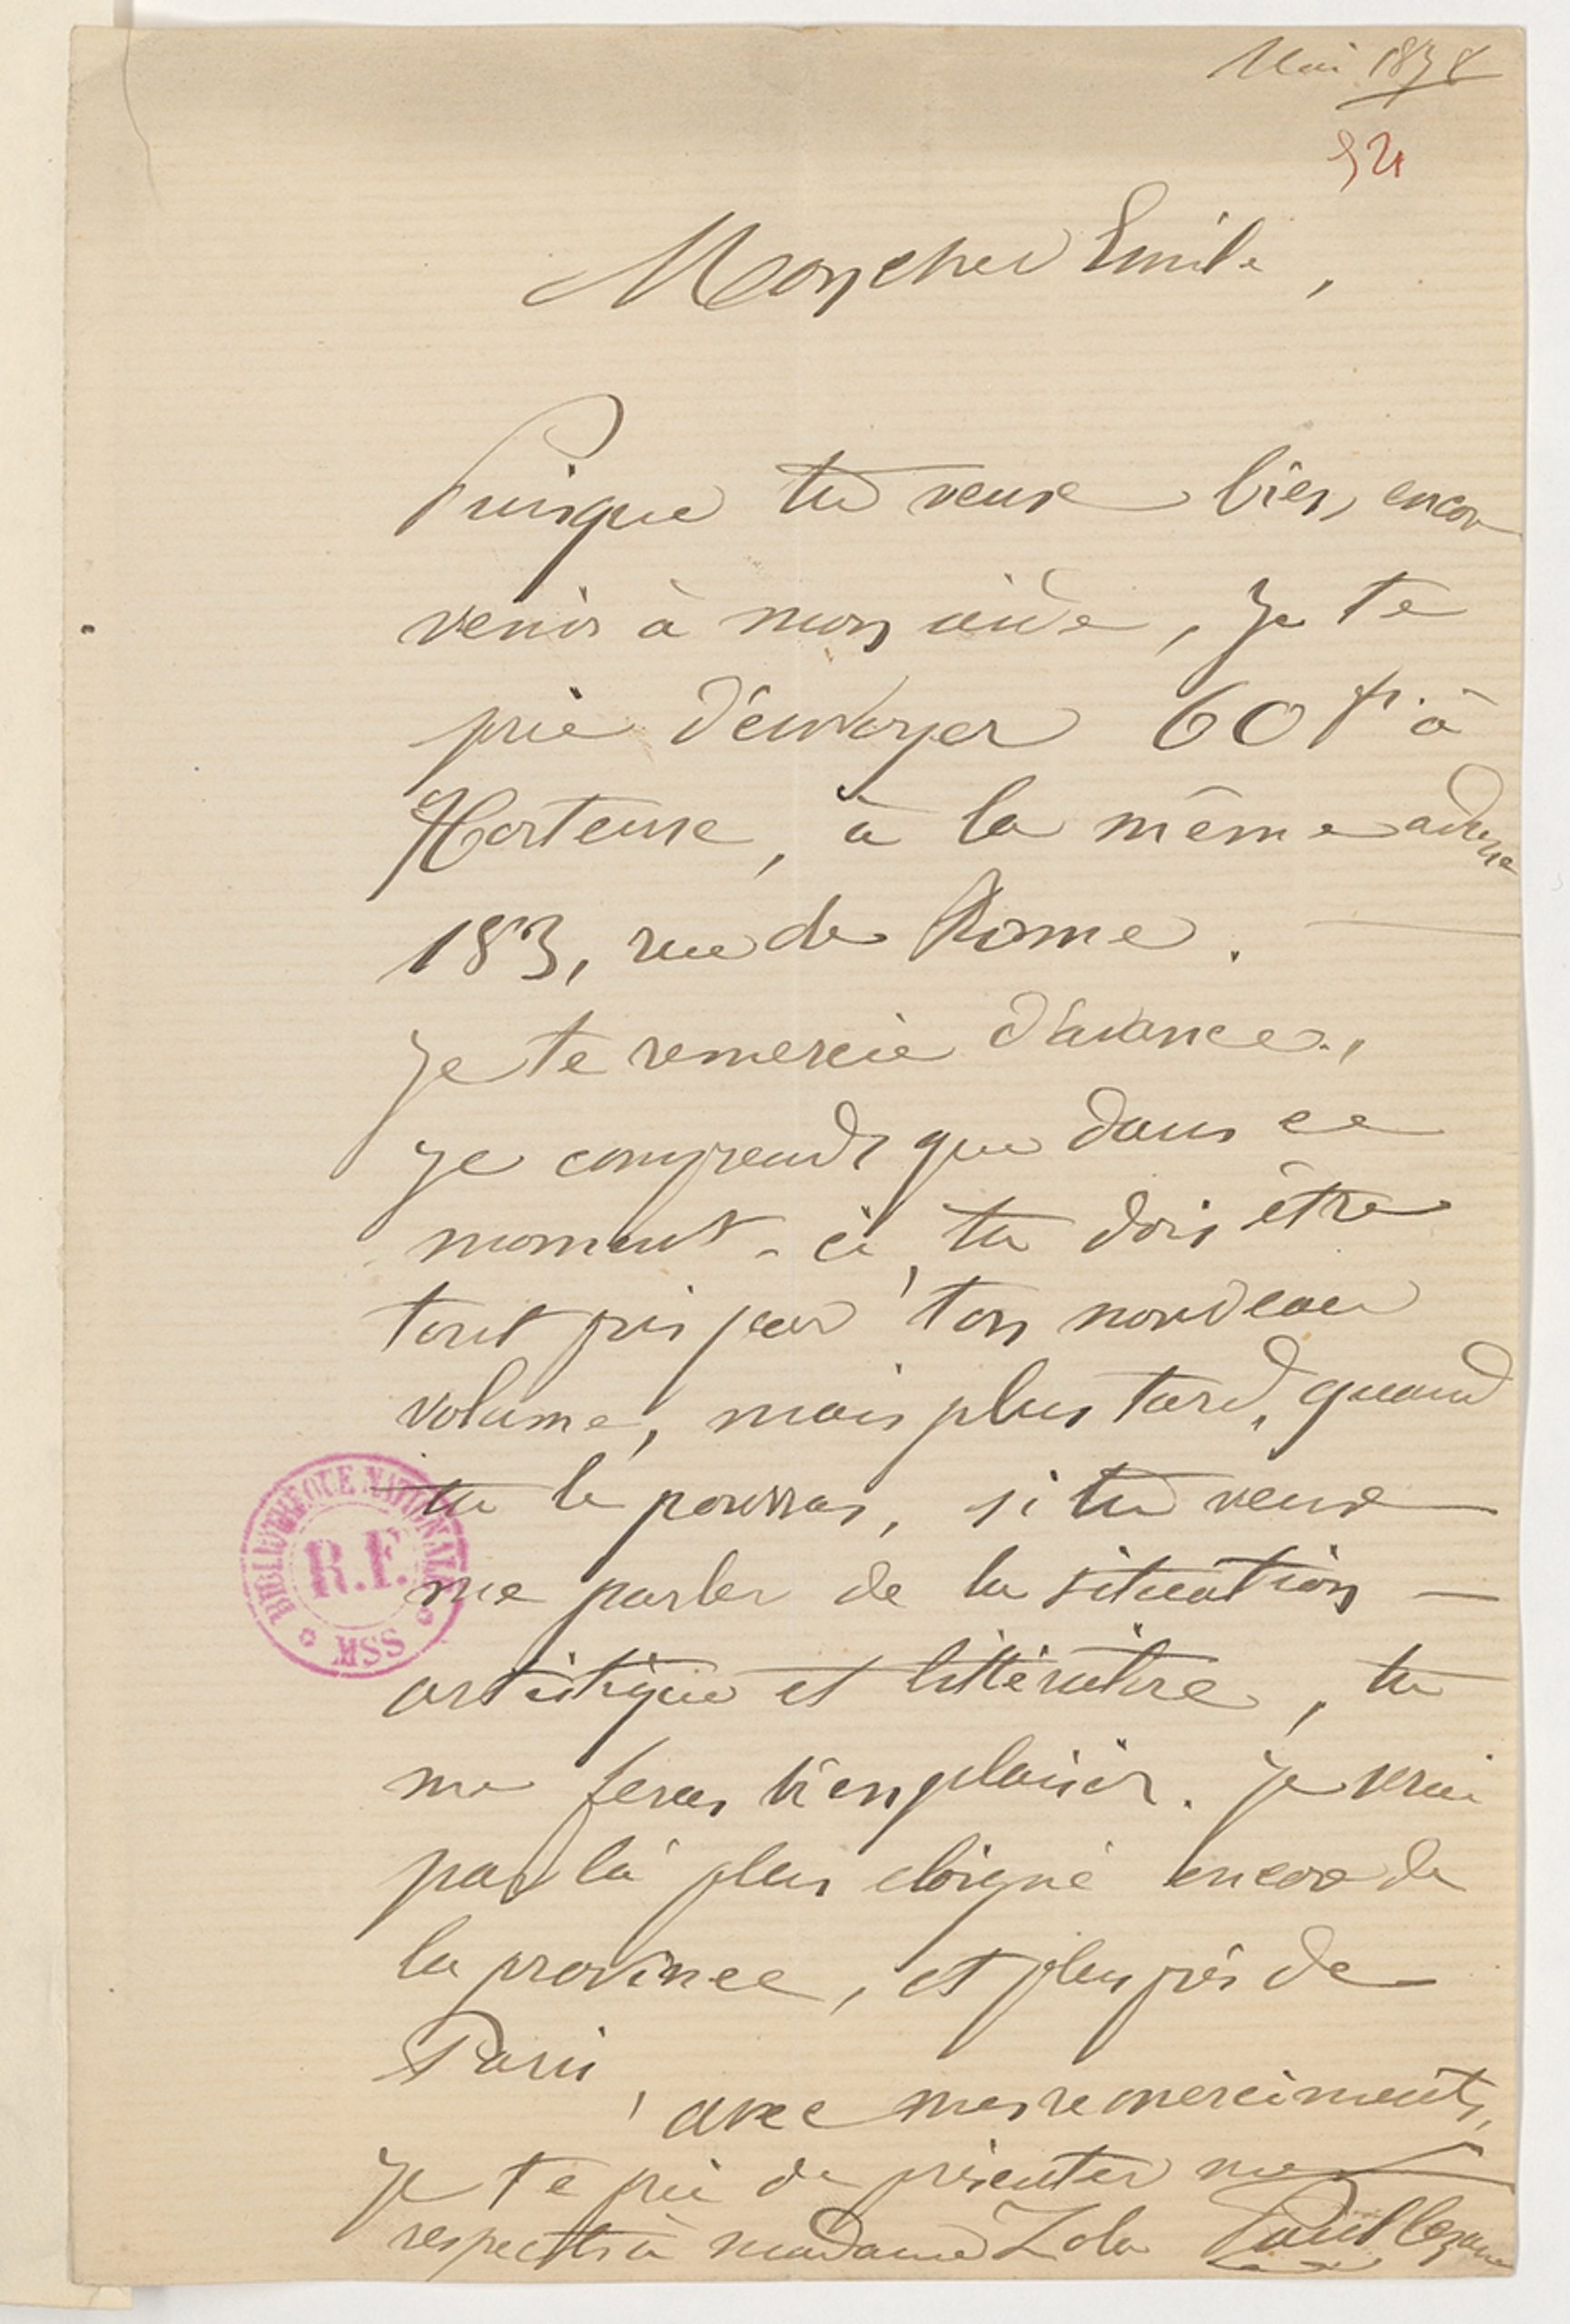 Mai 1878
Mon cher Emile,
Puisque tu veux bien encor
venir à mon aide, je te
prie d'envoyer 60 fr. à
Hortense, à la même adresse
183, rue de Rome.
Je te remercie d'avance.,
je comprends que dans ce
moment-ci, tu dois être
tout pris par ton nouveau
volume, mais plus tard, quand
tu le pourras, si tu veux
me parler de la situation
artistique et littéraire, tu
me feras bien plaisir. Je serai
par là plus eloigné encore de
la province, et plus près de
Paris, avec mes remerciments,
Je te prie de présenter mes
respects à madame Zola Paul Cezanne
BIBLIOTHEQUE NATIONALE
R.F.
MSS